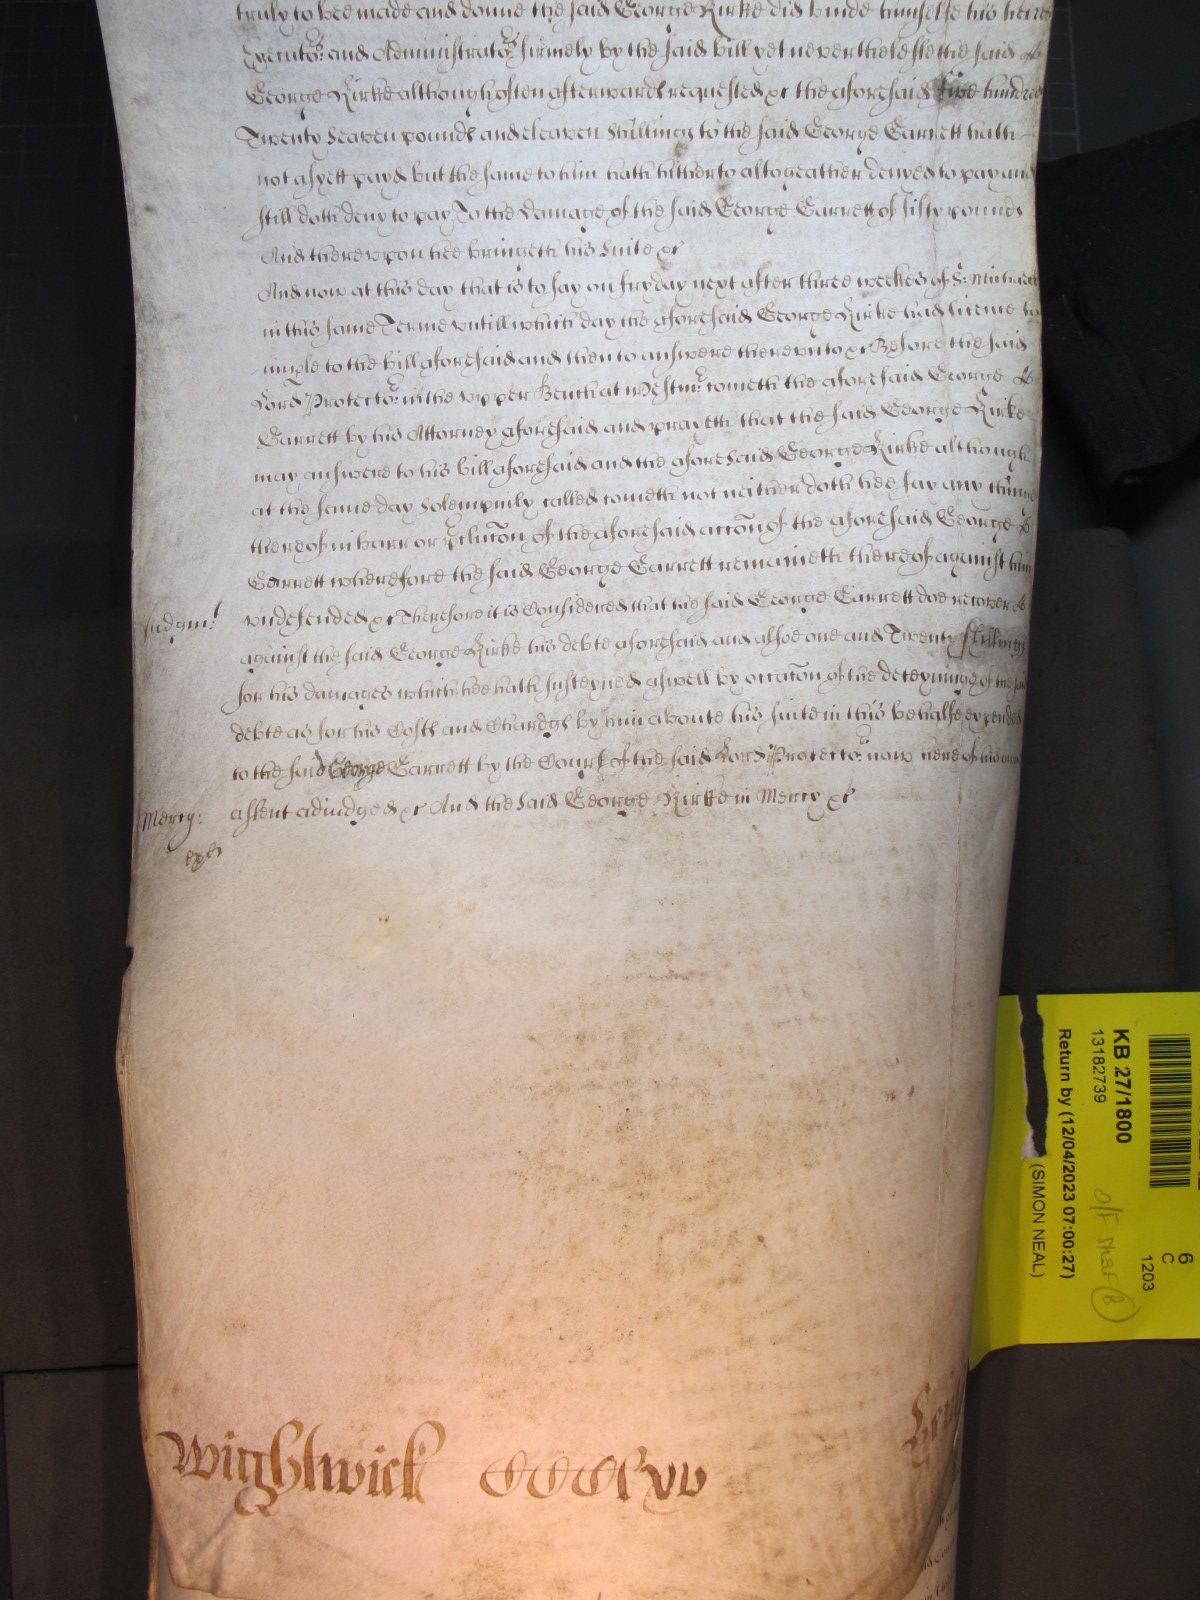 truly to bee made and donne the said George Kirke did binde himselfe his heires
Executors: and Administrators firmely by the said bill yet neverthelesse the said
George Kirke although often afterwards requested &c the aforesaid five hundred
Twenty Seaven pounds and eleaven Shillings to the said George Garrett hath
not as yett payd but the same to him hath hitherto altogeather denyed to pay and
still doth deny to pay To the damage of the said George Garrett of fifty pounds
And thereupon hee bringeth his Suite &c
And now at this day that is to say on fryday next after three weekes of St Michael
in this same Terme untill which day the aforesaid George Kirke had licence to
imple to the bill aforesaid and then to answere thereunto &c Before the said
Lord Protector: in the upper Bench at Westmr: cometh the aforesaid George
Garrett by his Attorney aforesaid and prayeth that the said George Kirke
may answere to his bill aforesaid and the aforesaid George Kirke although
at the same day Solempnly called cometh not neither doth hee say any thinge
thereof in barr or preclusion of the aforesaid accon of the aforesaid George
Garrett wherefore the said George Garrett remaineth thereof against him
Judgmt: undefended &c Therefore it is Considered that the said George Garrett doe recover
against the said George Kirke his debte aforesaid and alsoe one and Twenty shillings
for his damages which hee hath susteyned aswell by occacon of the deteyninge of the said
debte as for his Costs and Chardgs by him aboute his suite in this behalfe expended
to the said George Garrett by the Court of the said Lord Protector: now here of his owne
Mercy: assent adiudged &c And the said George Kirke in Mercy &c
Wightwick CCCCxv
KB 27/1800
13182739
Return by (12/04/2023 07:00:27)
(SIMON NEAL)
6
C
1203